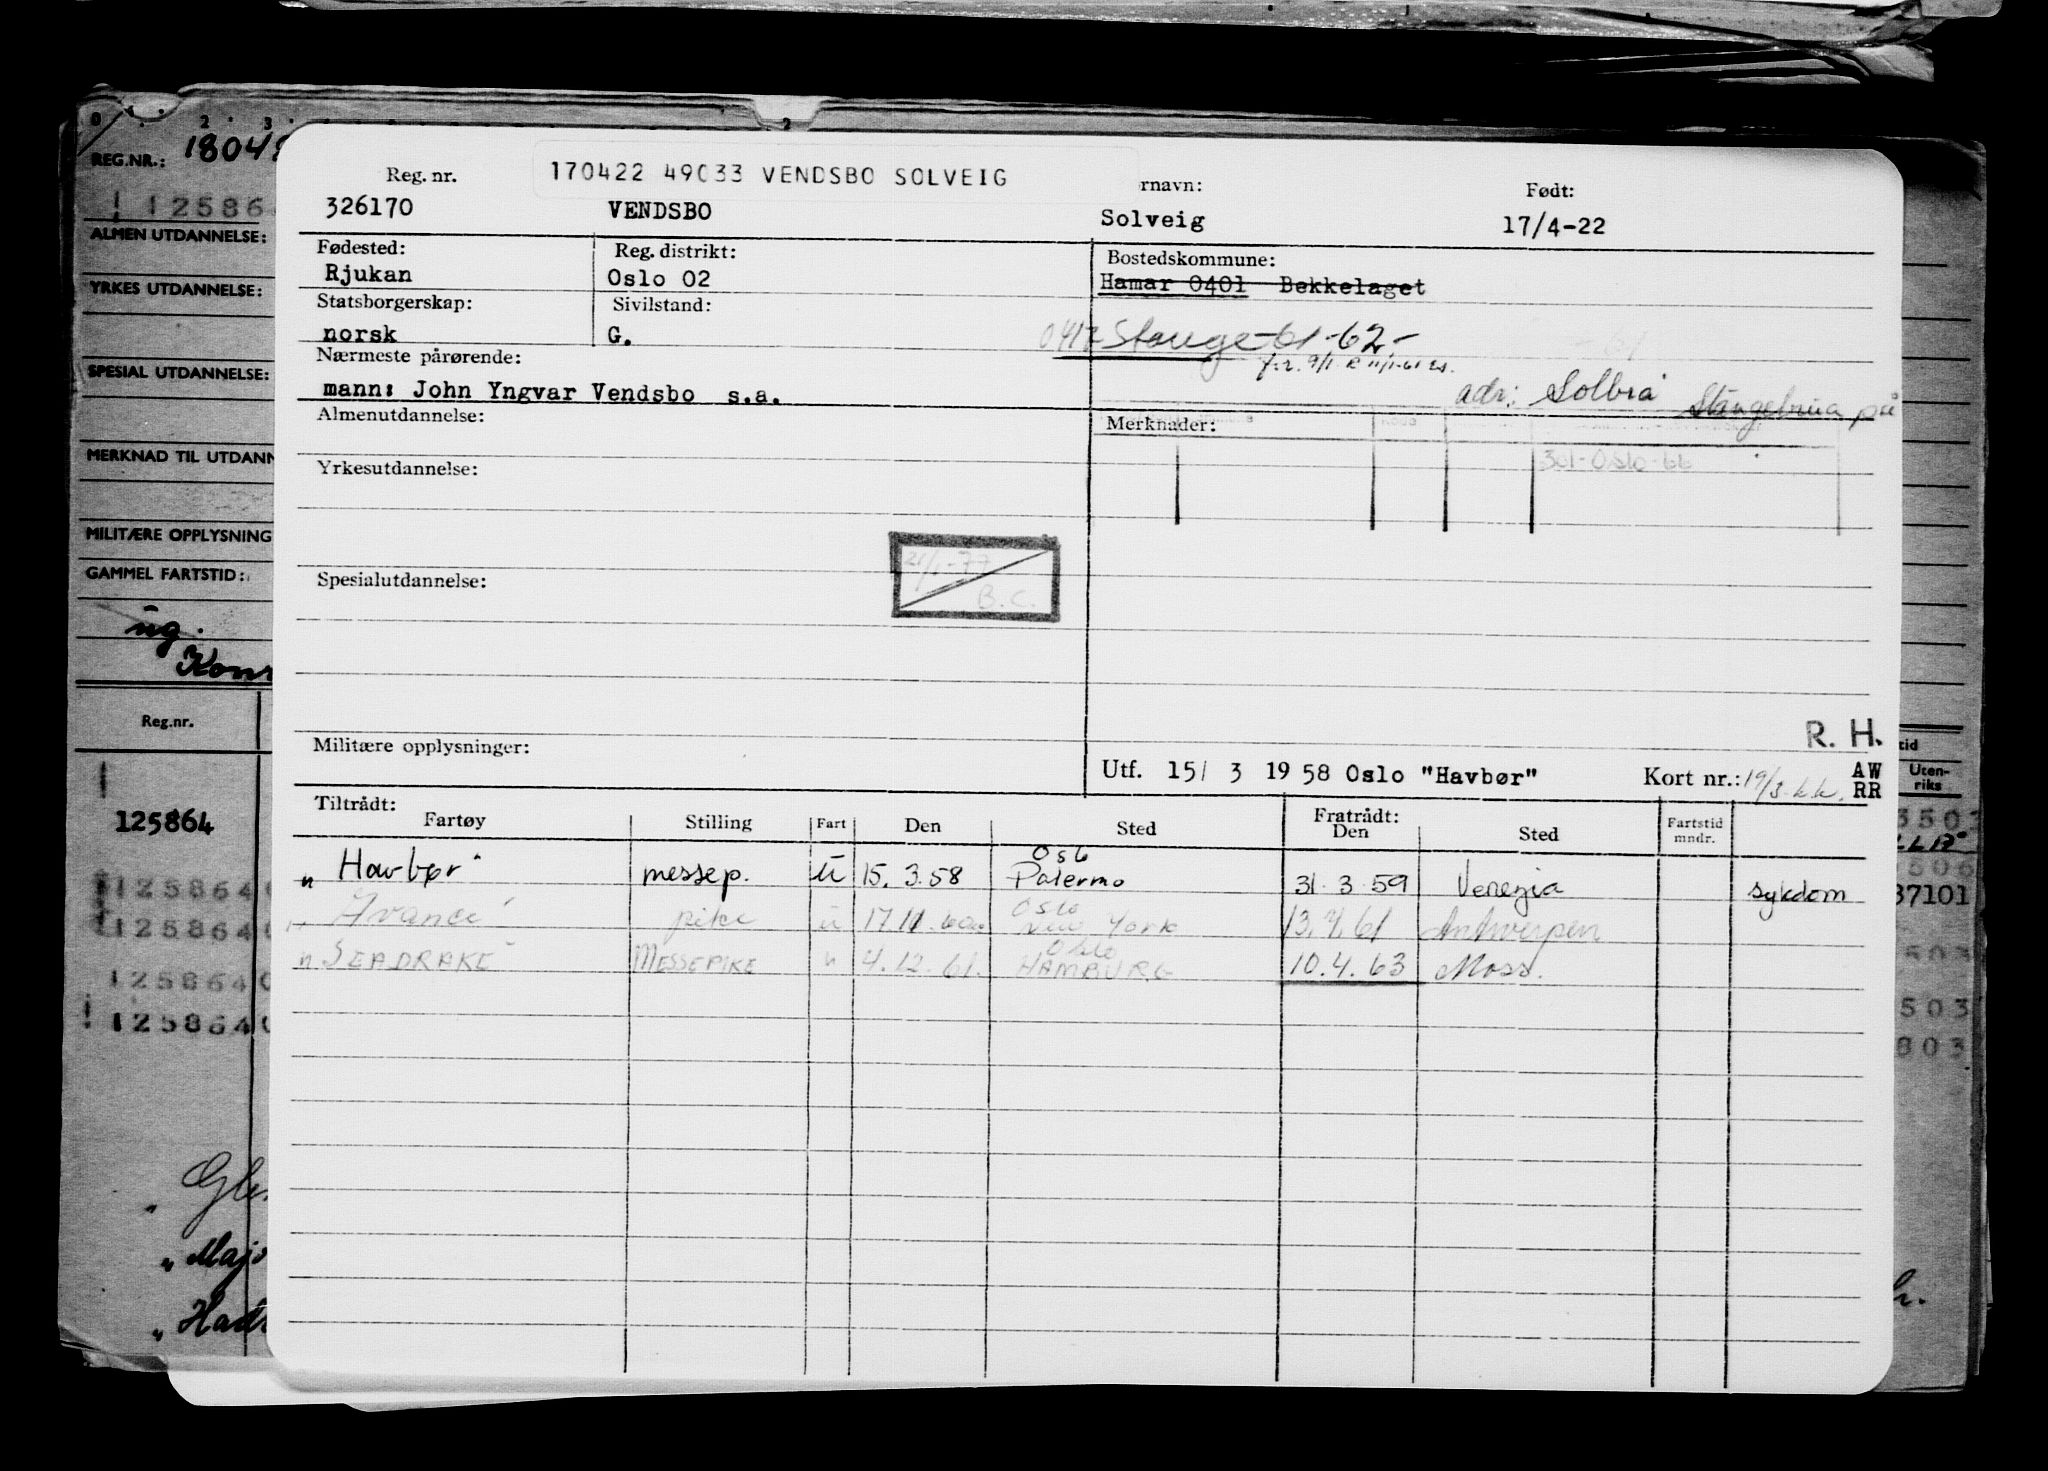 0 2 3 2
REG.NR.: 18048
! 125864
ALMEN UTDANNELSE:
YRKES UTDANNELSE:
SPESIAL UTDANNELSE:
MERKNAD TIL UTDANN
MILITÆRE OPPLYSNING
GAMMEL FARTSTID:
ug.
Reg.nr.
125864
125864 0
125864 0
125864 0
! 125864 0
" Majo
170422 49033 VENDSBO SOLVEIG
Reg. nr. rnavn: Født:
326170 VENDSBO Solveig 17/4-22
Fødested: Reg. distrikt: Bostedskommune:
Rjukan Oslo 02 Hamar 0401 Bekkelaget
Statsborgerskap: Sivilstand:
norsk G. 0417 Stange-61-62-
Nærmeste pårørende:
mann: John Yngvar Vendsbo s.a. adr: Solbrå Stangebrua på
Almenutdannelse: Merknader:
Yrkesutdannelse: 301-Oslo-66
21/1-77
B.C.
Spesialutdannelse:
R. H.
Militære opplysninger:
Utf. 15/ 3 19 58 Oslo "Havbør" Kort nr.: 19/3-66. AW
RR
Tiltrådt: Fratrådt:
Fartøy Stilling Fart Den Sted Den Sted Fartstid mndr.
Oslo
" Havbør" messep. u 15.3.58 Palermo 31.3.59 Venezia sykdom
Oslo
pike u New York 13.7.61 Antwerpen
Oslo
" SEADRAKE" MESSEPIKE u 4.12.61. HAMBURG 10.4.63 Moss.
tid
Uten-
riks
37101
503
503
803